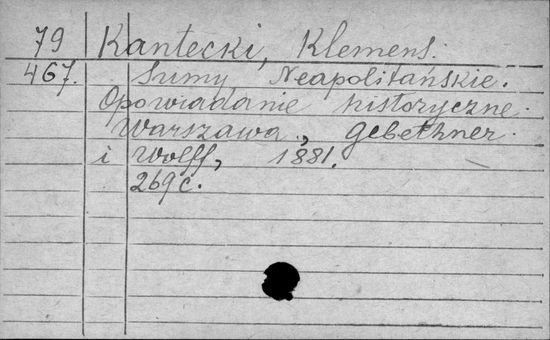 79 Kantecki, Klemens.
467. Sumy Neapolitańskie.
Opowiadanie historyczne.
Warszawa, Gebethner
i Wolff, 1881.
269 c.